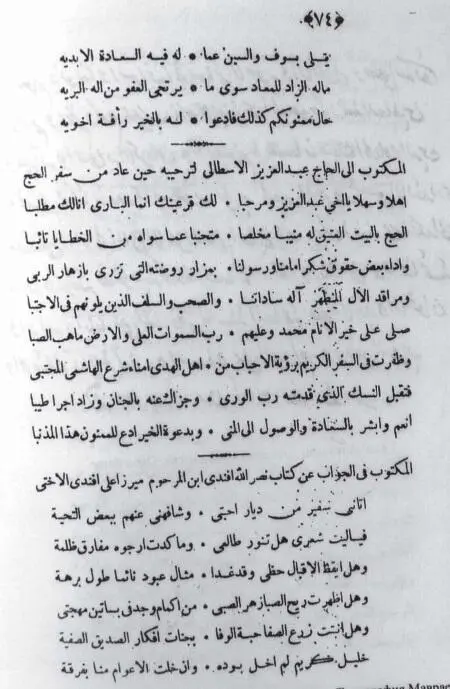 ﴿٧٤﴾
يتلى بسوف والسين عما * له فيه السعادة الابديه
ماله الزاد للمعاد سوى ما * يرتجى العفو من اله البريه
حال ممنونكم كذلك فادعوا * لـه بالخير رأفة اخويه
المكتوب الى الحاج عبدالعزيز الاسطالى لترحيبه حين عاد من سفر الحج
اهلا وسهلا يااخى عبدالعزيز ومرحبا • لك قرعينك انما البارى انالك مطلبا
الحج بالبيت العتيق له منيبا مخلصا • متجنبا عما سواه من الخطايا تائبا
واداء بعض حقوق شكر امامنا ورسولنا • بمزار روضته التى تزرى بازهار الربى
ومراقد الآل المطهر آله ساداتنا • والصحب والسلف الذين يلونهم فى الاجتبا
صلى على خير الانام محمد وعليهم • رب السموات العلى والارض ماهب الصبا
وظفرت فى السفر الكريم برؤية الاحباب من • اهل الهدى امناء شرع الهاشمى المجتبى
فتقبل النسك الذى قدمته رب الورى • وجزاك عنه بالجنان وزاد اجرا طيبا
انعم وابشر بالسعادة والوصول الى المنى • وبدعوة الخير ادع للممنون هذا المذنبا
المكتوب فى الجواب عن كتاب نصر الله افندى ابن المرحوم ميرزا على افندى الاختى
اتانى سفير من ديار احبتى • وشافهنى عنهم ببعض التحية
فياليت شعرى هل تنور طالعى • وما كدت ارجوه مفارق ظلمة
وهل ايقظ الاقبال حظى وقدغدا • مثال عبود نائما طول برهة
وهل اظهرت ريح الصبا زهر الصبى • من اكمام وجدى فى بساتين مهجتى
وهل انبتت زرع الصفا حبة الوفا • بجنات افكار الصديق الصفية
خليل كريم لم اخـل بوده • وان خلت الاعوام منا بفرقة